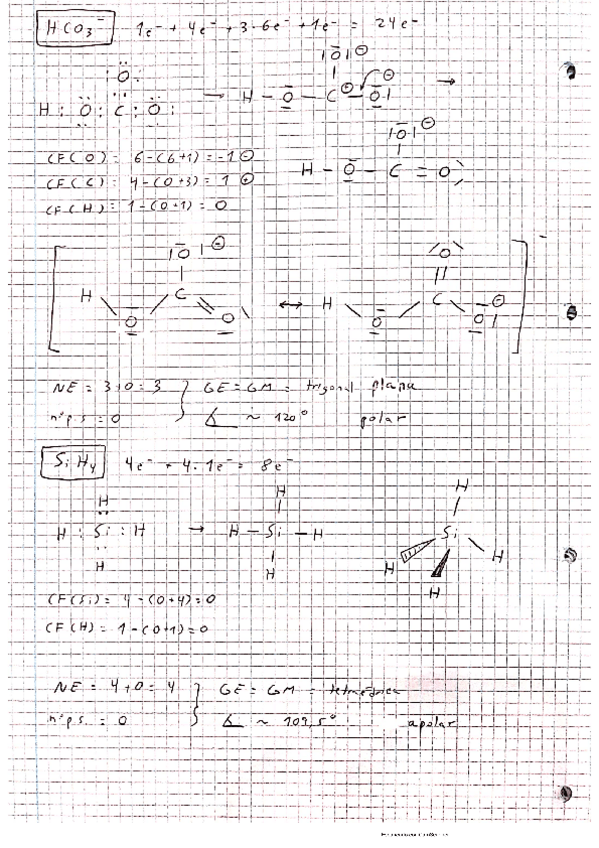 HCO₃⁻ 1e⁻ + 4e⁻ + 3·6e⁻ + 1e⁻ = 24e⁻
H : O : C : O :
O
→ H – O – C ⊕ O ⊖ →
|O| ⊖
CF(O) = 6 - (6+1) = -1 ⊖
CF(C) = 4 - (0+3) = 1 ⊕
CF(H) = 1 - (0+1) = 0
|O| ⊖
H – O – C = O
[ |O| ⊖ H O C O ↔ H O C O O ⊖ ] ⁻
NE = 3+0 = 3 } GE = GM = trigonal plana
nºp.s = 0 ∡ ~ 120° polar
SiH₄ 4e⁻ + 4·1e⁻ = 8e⁻
H
H : Si : H → H – Si – H
H
H
H
H
Si
H
H
H
CF(Si) = 4 - (0+4) = 0
CF(H) = 1 - (0+1) = 0
NE = 4+0 = 4 } GE = GM =
nºp.s. = 0 ∡ ~ 109,5° apolar